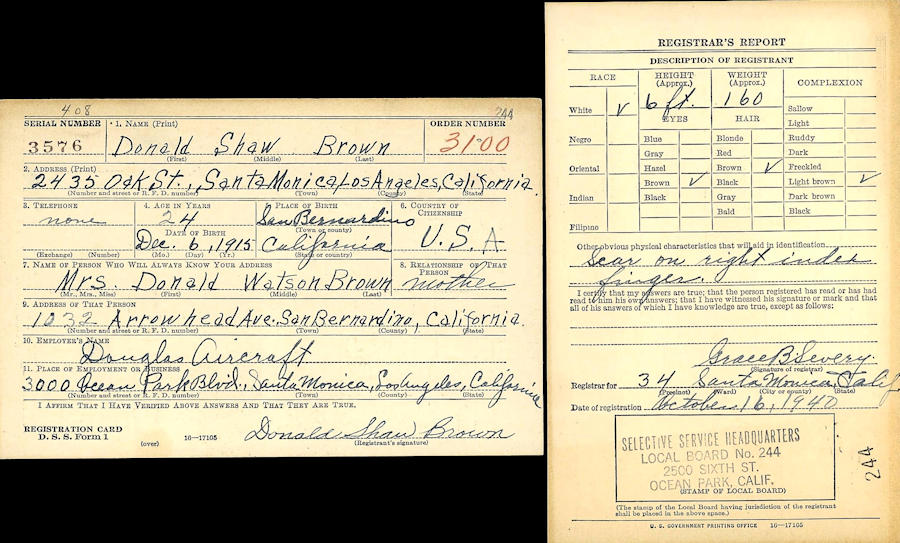 408
244
SERIAL NUMBER 1. NAME (Print) ORDER NUMBER
3576 Donald Shaw Brown 3100
(First) (Middle) (Last)
2. ADDRESS (Print)
2435 Oak St., Santa Monica, Los Angeles, California.
(Number and street or R. F. D. number) (Town) (County) (State)
3. TELEPHONE 4. AGE IN YEARS PLACE OF BIRTH 6. COUNTRY OF CITIZENSHIP
none 24 San Bernardino
(Town or county)
DATE OF BIRTH
Dec. 6, 1915 California U.S.A
(Exchange) (Number) (Mo.) (Day) (Yr.) (State or country)
7. NAME OF PERSON WHO WILL ALWAYS KNOW YOUR ADDRESS 8. RELATIONSHIP OF THAT PERSON
Mrs. Donald Watson Brown mother
(Mr., Mrs., Miss) (First) (Middle) (Last)
9. ADDRESS OF THAT PERSON
1032 Arrowhead Ave. San Bernardino, California.
(Number and street or R. F. D. number) (Town) (County) (State)
10. EMPLOYER'S NAME
Douglas Aircraft
11. PLACE OF EMPLOYMENT OR BUSINESS
3000 Ocean Park Blvd., Santa Monica, Los Angeles, California
(Number and street or R. F. D. number) (Town) (County) (State)
I AFFIRM THAT I HAVE VERIFIED ABOVE ANSWERS AND THAT THEY ARE TRUE.
REGISTRATION CARD
D. S. S. Form 1 (over) 16—17105 Donald Shaw Brown
(Registrant's signature)
REGISTRAR'S REPORT
DESCRIPTION OF REGISTRANT
RACE HEIGHT (Approx.) WEIGHT (Approx.) COMPLEXION
White ✓ 6 ft. 160 Sallow
EYES HAIR Light
Negro Blue Blonde Ruddy
Gray Red Dark
Oriental Hazel Brown ✓ Freckled
Brown ✓ Black Light brown ✓
Indian Black Gray Dark brown
Bald Black
Filipino
Other obvious physical characteristics that will aid in identification
Scar on right index
finger.
I certify that my answers are true; that the person registered has read or has had
read to him his own answers; that I have witnessed his signature or mark and that
all of his answers of which I have knowledge are true, except as follows:
Grace B Severy
(Signature of registrar)
Registrar for 34 Santa Monica, Calif
(Precinct) (Ward) (City or county) (State)
Date of registration October 16, 1940
SELECTIVE SERVICE HEADQUARTERS
LOCAL BOARD No. 244
2500 SIXTH ST.
OCEAN PARK, CALIF.
(STAMP OF LOCAL BOARD)
244
(The stamp of the Local Board having jurisdiction of the registrant
shall be placed in the above space.)
U. S. GOVERNMENT PRINTING OFFICE 16—17105